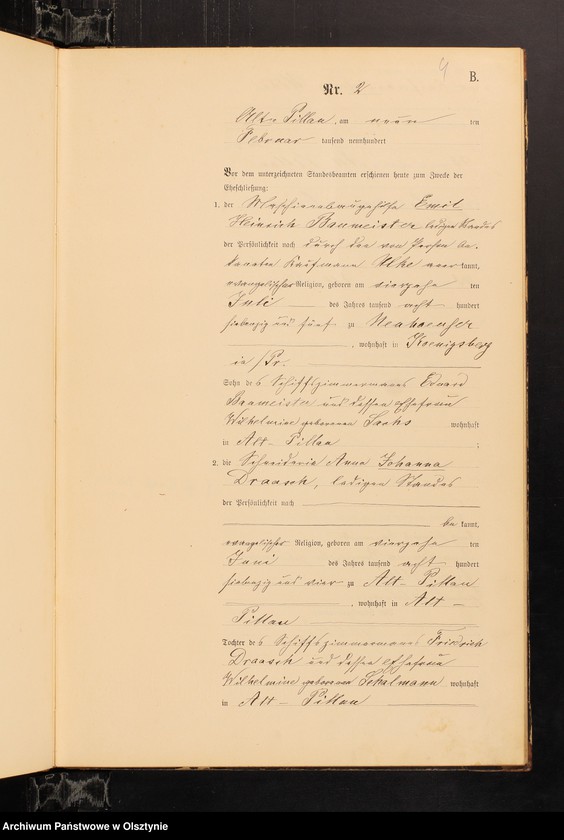 4
B.
Nr. 2
Alt-Pillau, am neun ten
Februar tausend neunhundert
Vor dem unterzeichneten Standesbeamten erschienen heute zum Zwecke der
Eheschließung:
1. der Maschinenbaugehilfe Emil
Heinrich Baumeister ledigen Standes
der Persönlichkeit nach durch den von Person be-
kannten Kaufmann anerkannt,
evangelischer Religion, geboren am vierzehn ten
Juli des Jahres tausend acht hundert
siebenzig und fünf zu Neuhaeuser
, wohnhaft in Koenigsberg
in /Pr.
Sohn des Schiffszimmermanns Eduard
Baumeister und dessen Ehefrau
Wilhelmine geborenen Sachs wohnhaft
in Alt-Pillau ;
2. die Schneiderin Anna Johanna
Draasch, ledigen Standes
der Persönlichkeit nach
be kannt,
evangelischer Religion, geboren am vierzehn ten
Juni des Jahres tausend acht hundert
siebenzig und vier zu Alt-Pillau
, wohnhaft in Alt-
Pillau
Tochter des Schiffszimmermanns Friedrich
Draasch und dessen Ehefrau
Wilhelmine geborenen wohnhaft
in Alt-Pillau
Archiwum Państwowe w Olsztynie